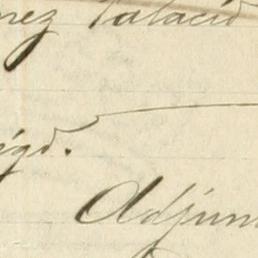 nez Palacio
igd.
Adjun